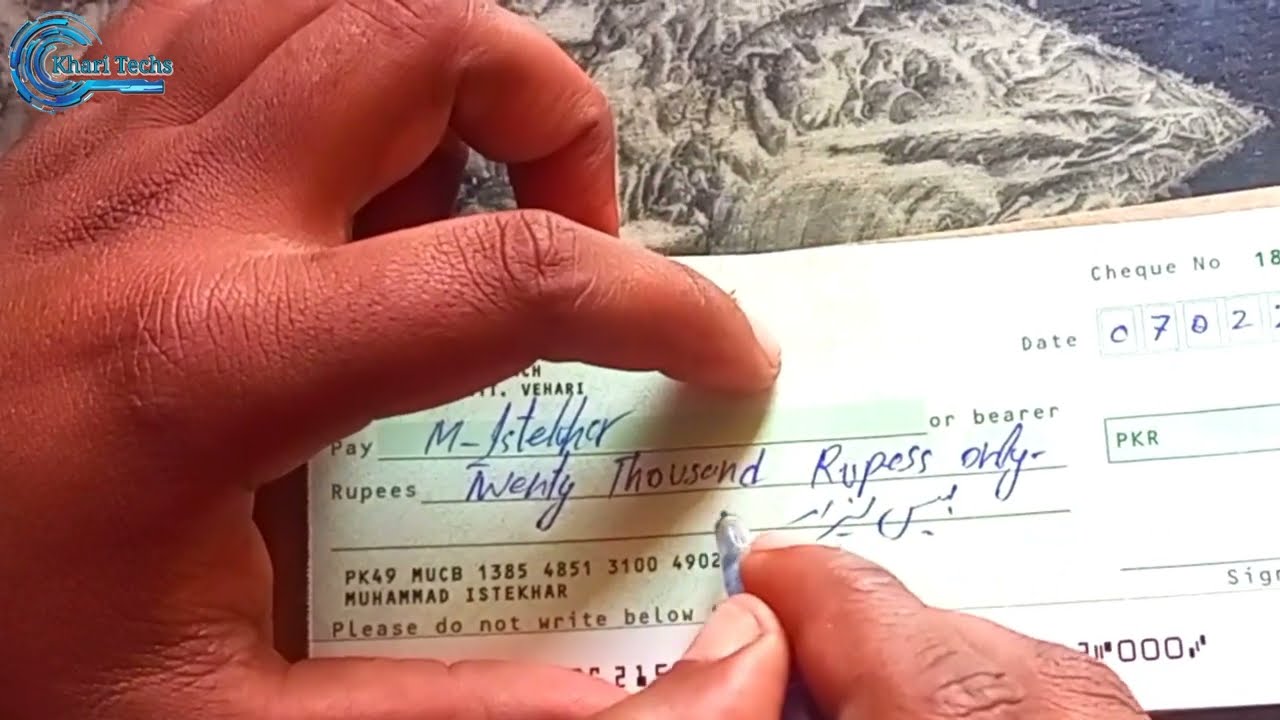 Khari Techs
Cheque No 18
Date 07022
VEHARI
Pay M-Istekhar or bearer
PKR
Rupees Twenty Thousand Rupess only-
بیس ہزار
PK49 MUCB 1385 4851 3100 4902
MUHAMMAD ISTEKHAR
Sign
Please do not write below
000